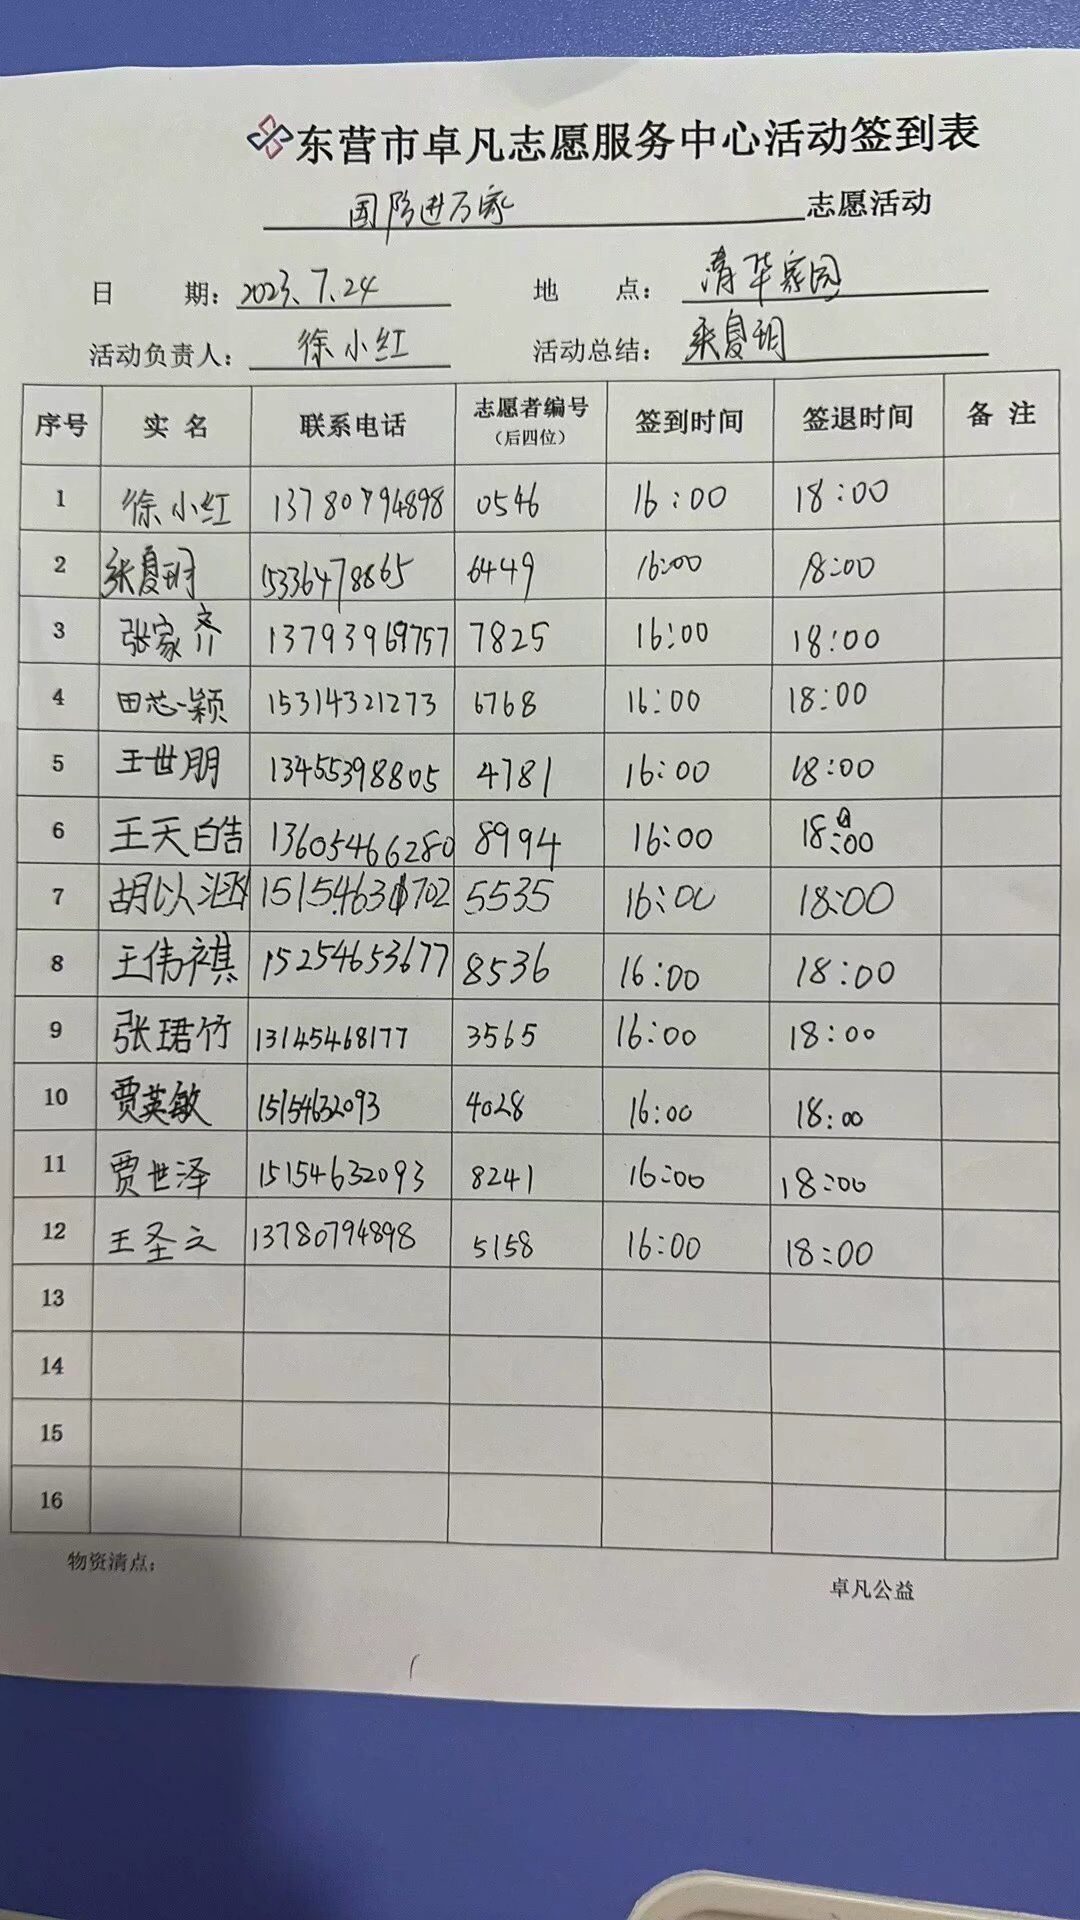 东营市卓凡志愿服务中心活动签到表
国防进万家 志愿活动
日 期：2023.7.24 地 点：清华家园
活动负责人：徐小红 活动总结：张夏玥
序号 实名 联系电话 志愿者编号（后四位） 签到时间 签退时间 备注
1 徐小红 13780794898 0546 16:00 18:00
2 张夏玥 15336478865 6449 16:00 18:00
3 张家齐 13793969757 7825 16:00 18:00
4 田芯颖 15314321273 6768 16:00 18:00
5 王世朋 13455398805 4781 16:00 18:00
6 王天皓 13605466280 8994 16:00 18:00
7 胡以涵 5535 16:00 18:00
8 王伟祺 15254653677 8536 16:00 18:00
9 张珺竹 13145468177 3565 16:00 18:00
10 贾英敏 15154632093 4028 16:00 18:00
11 贾世泽 15154632093 8241 16:00 18:00
12 王圣文 13780794898 5158 16:00 18:00
13
14
15
16
物资清点：
卓凡公益